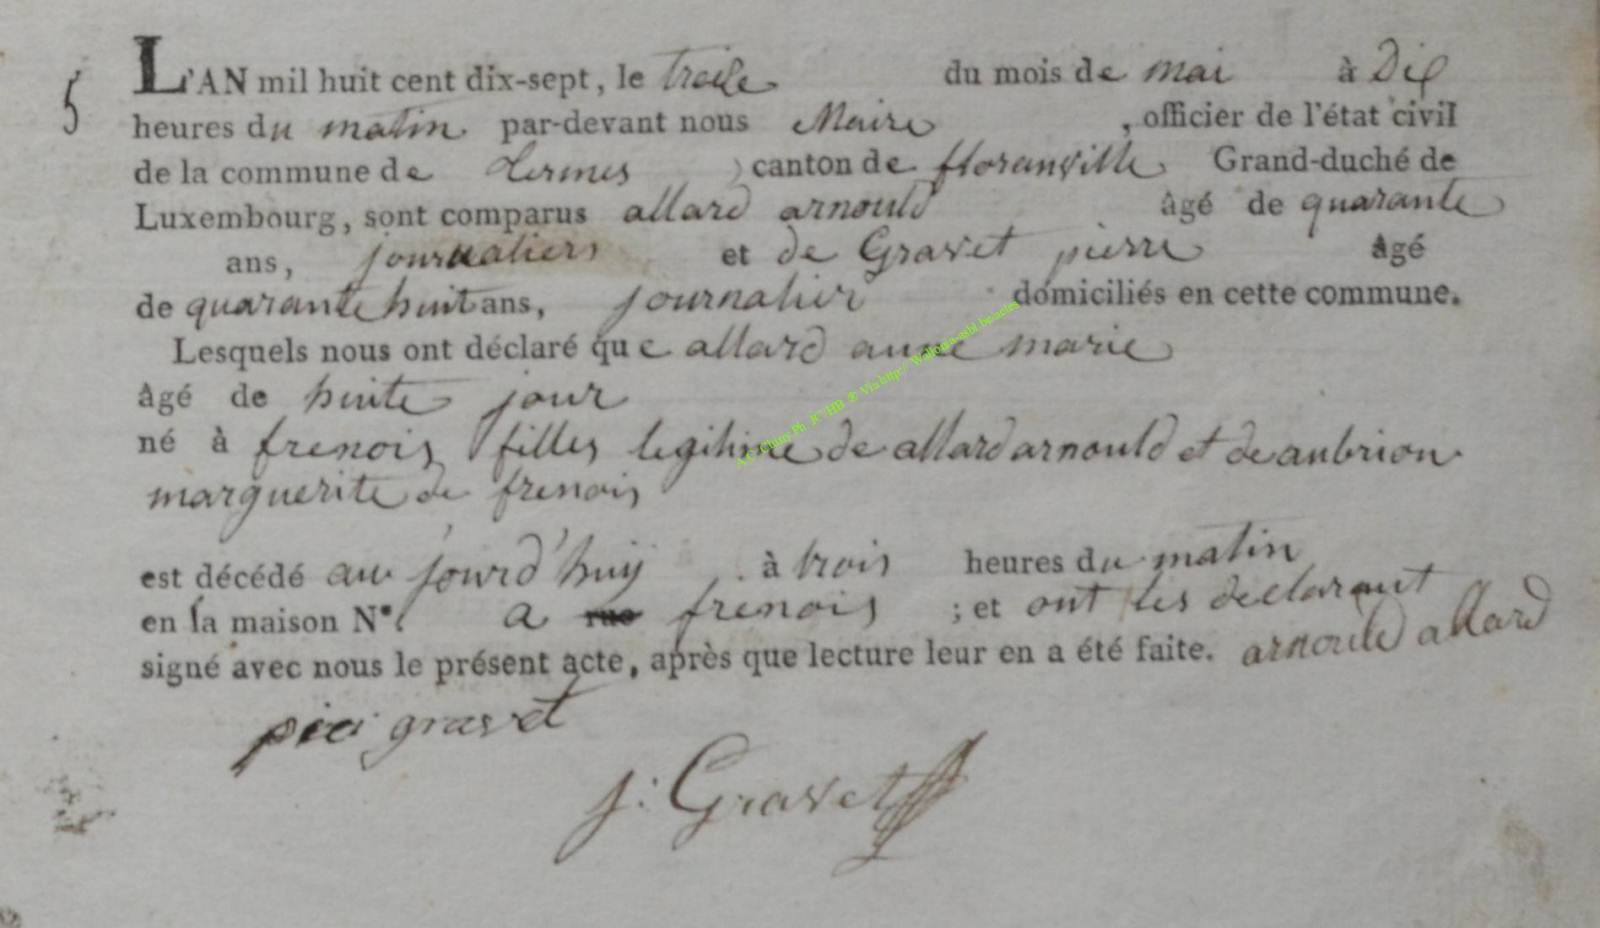 5
L'AN mil huit cent dix-sept, le treise du mois de mai à Dix
heures du matin par-devant nous Maire , officier de l'état civil
de la commune de termes canton de floranville Grand-duché de
Luxembourg, sont comparus allard arnould âgé de quarante
ans, journaliers et de Gravet pierre âgé
de quarante huit ans, journalier domiciliés en cette commune.
Lesquels nous ont déclaré que allard anne marie
âgé de huite jour
né à frenois filles legitime de allard arnould et de aubrion
marguerite de frenois
est décédé au jourd'huy à trois heures du matin
en la maison N°. a rue frenois ; et ont les declarant
signé avec nous le présent acte, après que lecture leur en a été faite. arnould allard
gravet
j: Gravet